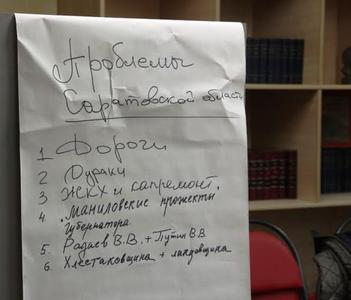 Проблемы
Саратовской области
1 Дороги
2 Дураки
3 ЖКХ и капремонт.
4. "Маниловские прожекты
губернатора
5. Радаев В.В. + Путин В.В
6. Хлестаковщина + ландовщина